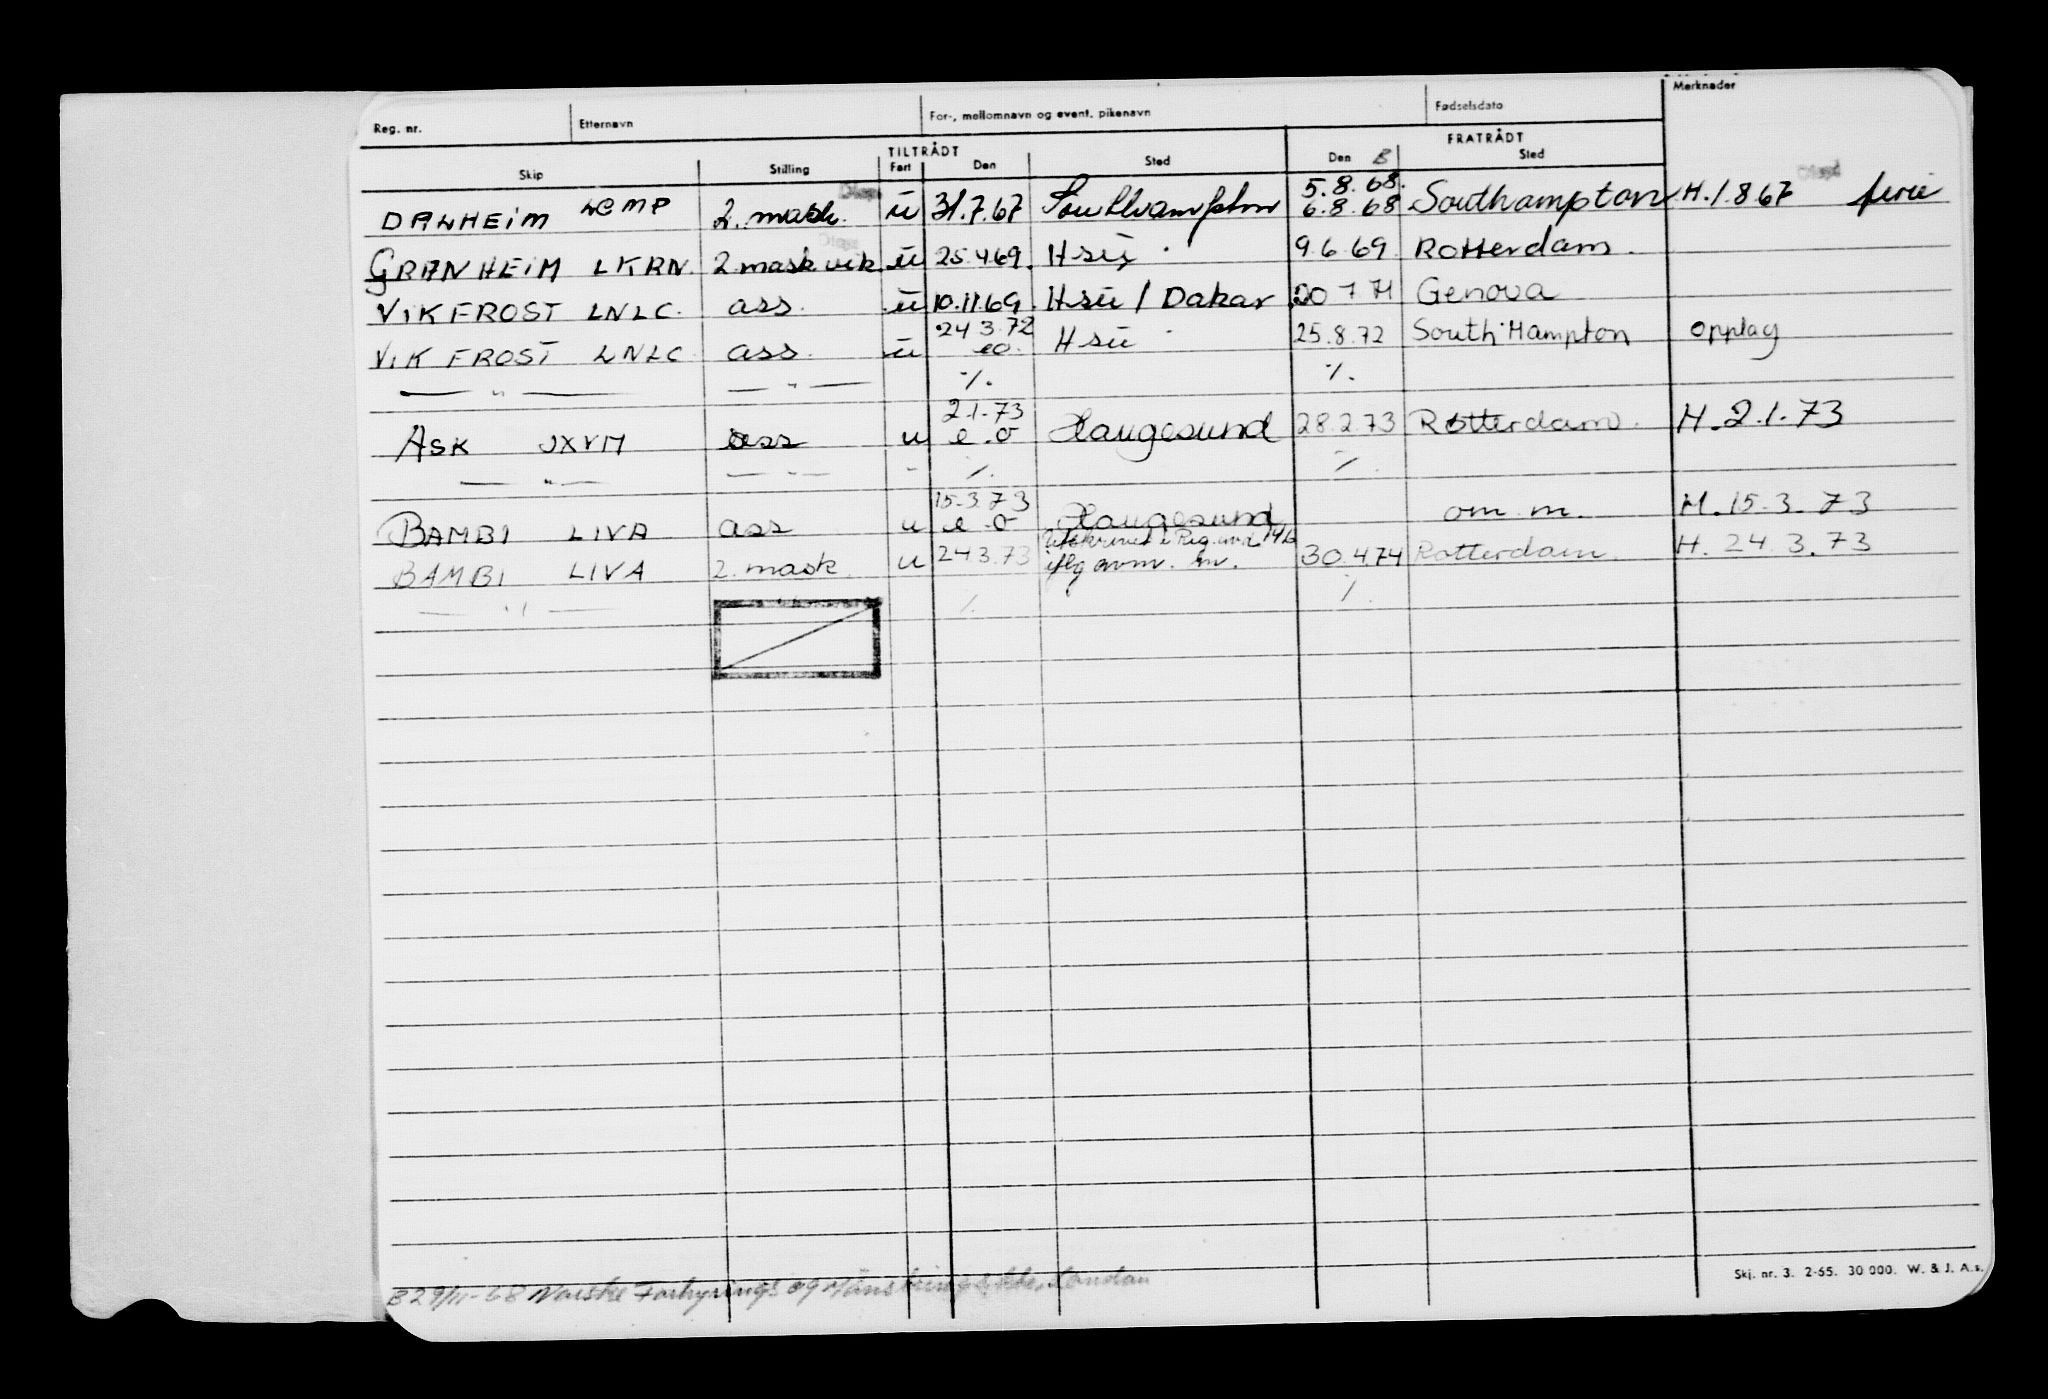 Reg. nr. Etternavn For-, mellomnavn og event. pikenavn Fødselsdato Merknader
TILTRÅDT FRATRÅDT
Skip Stilling Fart Den Sted Den B Sted
5.8.68.
DALHEIM LCMP 2. mask. u 31.7.67 Southampton 6.8.68 Southampton H.1.8 67 ferie
GRANHEIM LKRN. 2 mask vik u 25.4 69. Hsu 9.6 69 Rotterdam.
VIKFROST LNLC. ass. u 10.11.69. Hsu / Dakar 20 7 71 Genova
24 3.72
VIK FROST LNLC ass. u eo. Hsu 25.8.72 South Hampton opplag
— " — — " — %. %.
2.1.73
ASK JXVM ass u e.o Haugesund 28.2.73 Rotterdam. H. 2.1.73
— " — — " — " %. %.
15.3.73
BAMBI LIVA ass u e.o Haugesund om m. H. 15.3.73
BAMBI LIVA 2. mask. u 24.3.73 30.4.74 Rotterdam. H. 24.3.73
— " — %. %.
B 29/11-68 Norske Forhyrings og Mønstrings Ktr, London
Skj. nr. 3. 2-65. 30 000. W. & J. A.s.